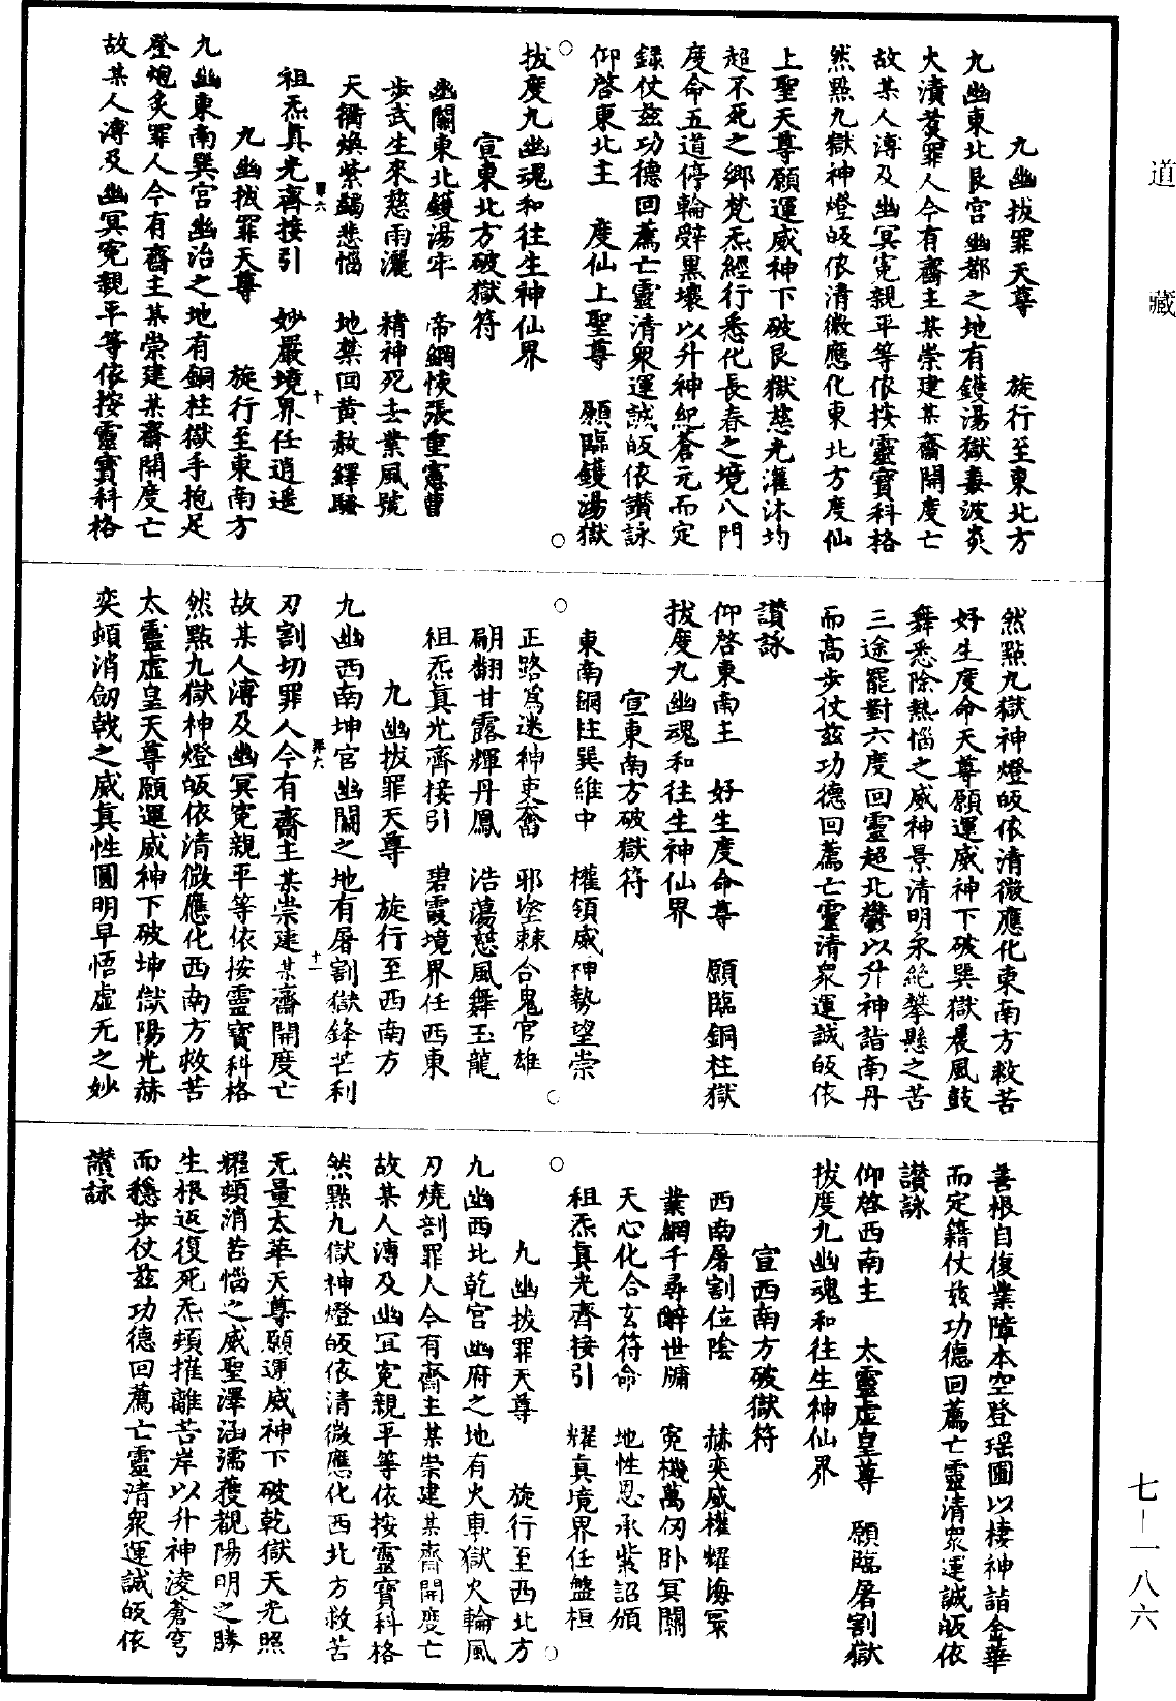 道藏
九幽拔罪天尊　旋行至東北方
九幽東北艮宮幽都之地有鑊湯獄毒波炎
火漬煑罪人今有齋主某崇建某齋開度亡
故某人溥及幽冥寃親平等依按靈寶科格
然點九獄神燈皈依清微應化東北方度仙
上聖天尊願運威神下破艮獄慈光灌沐均
超不死之鄉梵炁經行悉化長春之境八門
度命五道停輪辭黑壤以升神紀蒼元而定
録仗茲功德回薦亡靈清衆運誠皈依讃詠
仰啓東北主　度仙上聖尊　願臨鑊湯獄
拔度九幽魂和往生神仙界
宣東北方破獄符
幽關東北鑊湯牢　帝網恢張重憲曹
步武生來慈雨灑　精神死去業風號
天衢煥紫蠲悲惱　地禁回黃赦繹騷
罪六　十
祖炁真光齊接引　妙嚴境界任逍遥
九幽拔罪天尊　旋行至東南方
九幽東南巽宮幽治之地有銅柱獄手抱足
登炮炙罪人今有齋主某崇建某齋開度亡
故某人溥及幽冥寃親平等依按靈寶科格
然點九獄神燈皈依清微應化東南方救苦
好生度命天尊願運威神下破巽獄晨風鼓
舞悉除熱惱之威神景清明永絶攀懸之苦
三途罷對六度回靈超北鬱以升神詣南丹
而高步仗茲功德回薦亡靈清衆運誠皈依
讃詠
仰啓東南主　好生度命尊　願臨銅柱獄
拔度九幽魂和往生神仙界
宣東南方破獄符
東南銅柱巽維中　權領威神勢望崇
正路爲迷神吏奮　邪塗棘合鬼官雄
翩翻甘露輝丹鳳　浩蕩愻風舞玉龍
祖炁真光齊接引　碧霞境界任西東
九幽拔罪天尊　旋行至西南方
九幽西南坤宮幽關之地有屠割獄鋒芒利
罪六　十一
刃割切罪人今有齋主某崇建某齋開度亡
故某人溥及幽冥寃親平等依按靈寶科格
然點九獄神燈皈依清微應化西南方救苦
太靈虛皇天尊願運威神下破坤獄陽光赫
奕頓消劒戟之威真性圓明早悟虛无之妙
善根自復業障本空登瑶圃以棲神詣金華
而定籍仗茲功德回薦亡靈清衆運誠皈依
讃詠
仰啓西南主　太靈虛皇尊　願臨屠割獄
拔度九幽魂和往生神仙界
宣西南方破獄符
西南屠割位陰　赫奕威權耀海
業網千尋醉世牖　寃機萬仞卧冥關
天心化合玄符命　地性恩承紫詔頒
祖炁真光齊接引　耀真境界任盤桓
九幽拔罪天尊　旋行至西北方
九幽西北乾宮幽府之地有火車獄火輪風
刃燒剖罪人今有齋主某崇建某齋開度亡
故某人溥及幽冥寃親平等依按靈寶科格
然點九獄神燈皈依清微應化西北方救苦
无量太華天尊願運威神下破乾獄天光照
耀頓消苦惱之威聖澤涵濡獲覩陽明之勝
生根返復死炁頓摧離苦岸以升神淩蒼穹
而穩步仗茲功德回薦亡靈清衆運誠皈依
讃詠
七－一八六